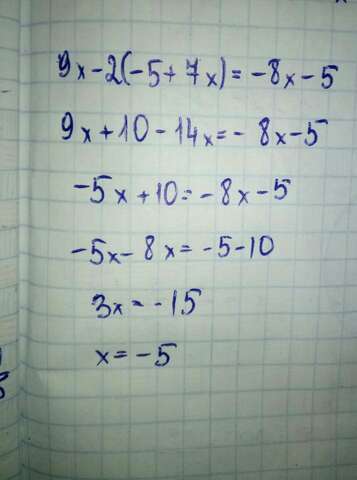 9x-2(-5+7x)=-8x-5
9x+10-14x=-8x-5
-5x+10=-8x-5
-5x-8x=-5-10
3x=-15
x=-5